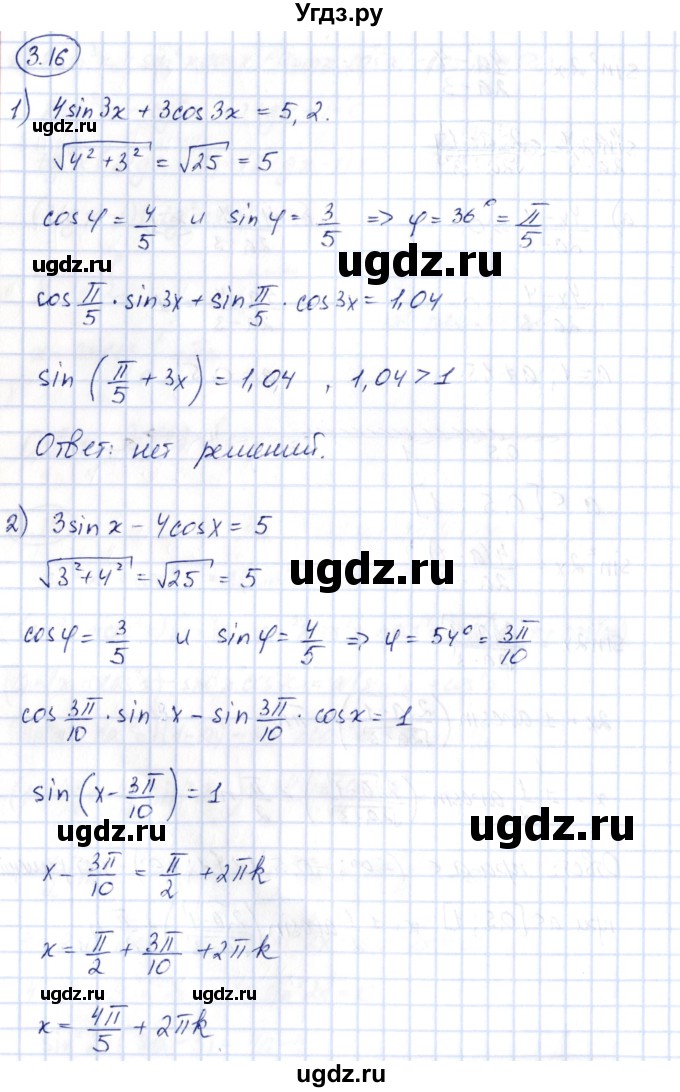 Угдз.ру
3.16
1) 4sin3x + 3cos3x = 5,2.
ugdz.ru ugdz.ru
√(4² + 3²) = √25 = 5
cosφ = 4/5 и sinφ = 3/5 => φ = 36° = π/5
ugdz.ru
cos π/5 · sin3x + sin π/5 · cos3x = 1,04
sin (π/5 + 3x) = 1,04 , 1,04 > 1
Ответ: нет решений.
2) 3sinx – 4cosx = 5
√(3² + 4²) = √25 = 5
ugdz.ru
cosφ = 3/5 и sinφ = 4/5 => φ = 54° = 3π/10
cos 3π/10 · sin x – sin 3π/10 · cosx = 1
sin (x – 3π/10) = 1
ugdz.ru ugdz.ru
x – 3π/10 = π/2 + 2πk
x = π/2 + 3π/10 + 2πk
ugdz.ru ugdz.ru
x = 4π/5 + 2πk
ugdz.ru